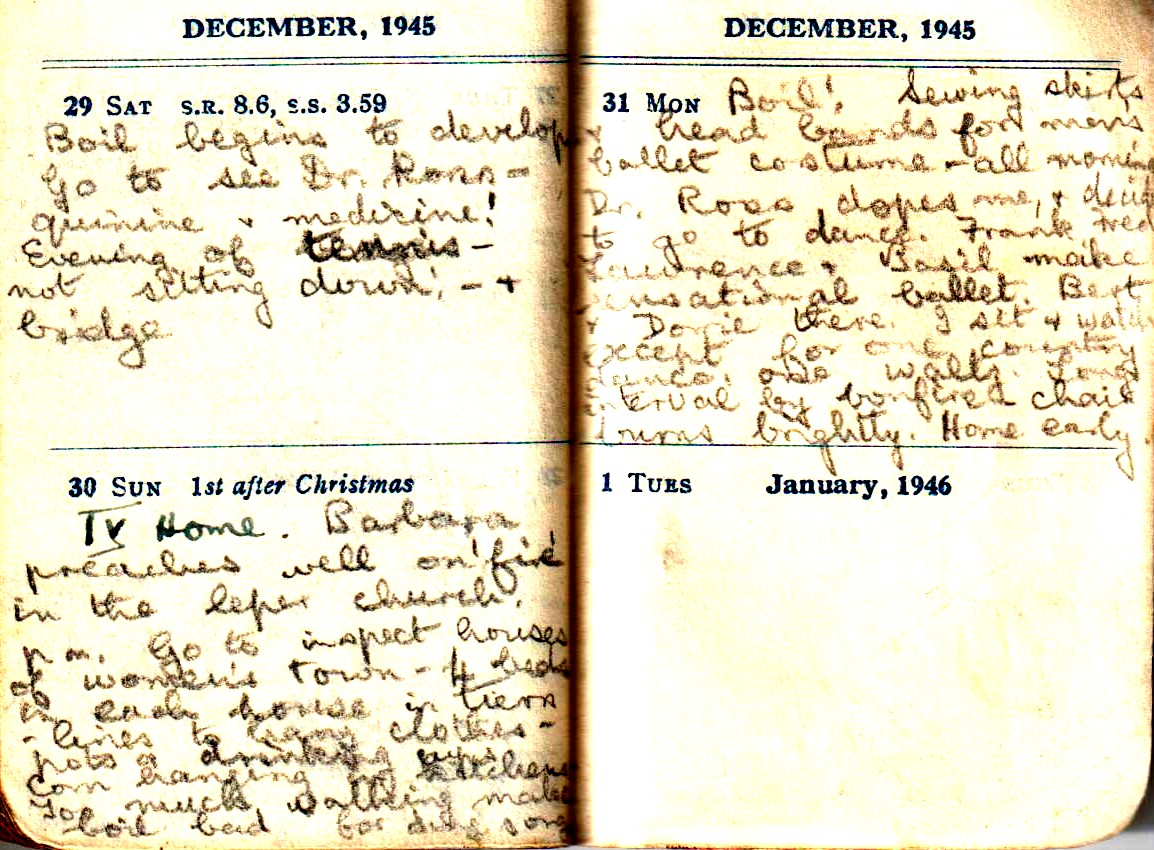 DECEMBER, 1945
29 SAT S.R. 8.6, S.S. 3.59
Boil begins to develop
Go to see Dr. Ross -
quinine & medicine!
Evening of tennis -
not sitting down! - +
bridge
30 SUN 1st after Christmas
TV Home. Barbara
preaches well on 'fire'
in the leper church.
p.m. Go to inspect houses
of women's town - 4 beds
in each house in tiers
- lines to hang clothes -
pots & drinking
corn hanging in kitchens
Too much walking makes
boil bad for
DECEMBER, 1945
31 MON Boil! Sewing skirts
& head bands for mens
ballet costume - all morning
Dr. Ross dopes me, & decide
to go to dance. Frank Fred
Lawrence & Basil make
sensational ballet. Bert
& Dorrie there. I sit & watch
except for one country
dance, one waltz. Long
interval by bonfire & chair
burns brightly. Home early.
1 TUES January, 1946